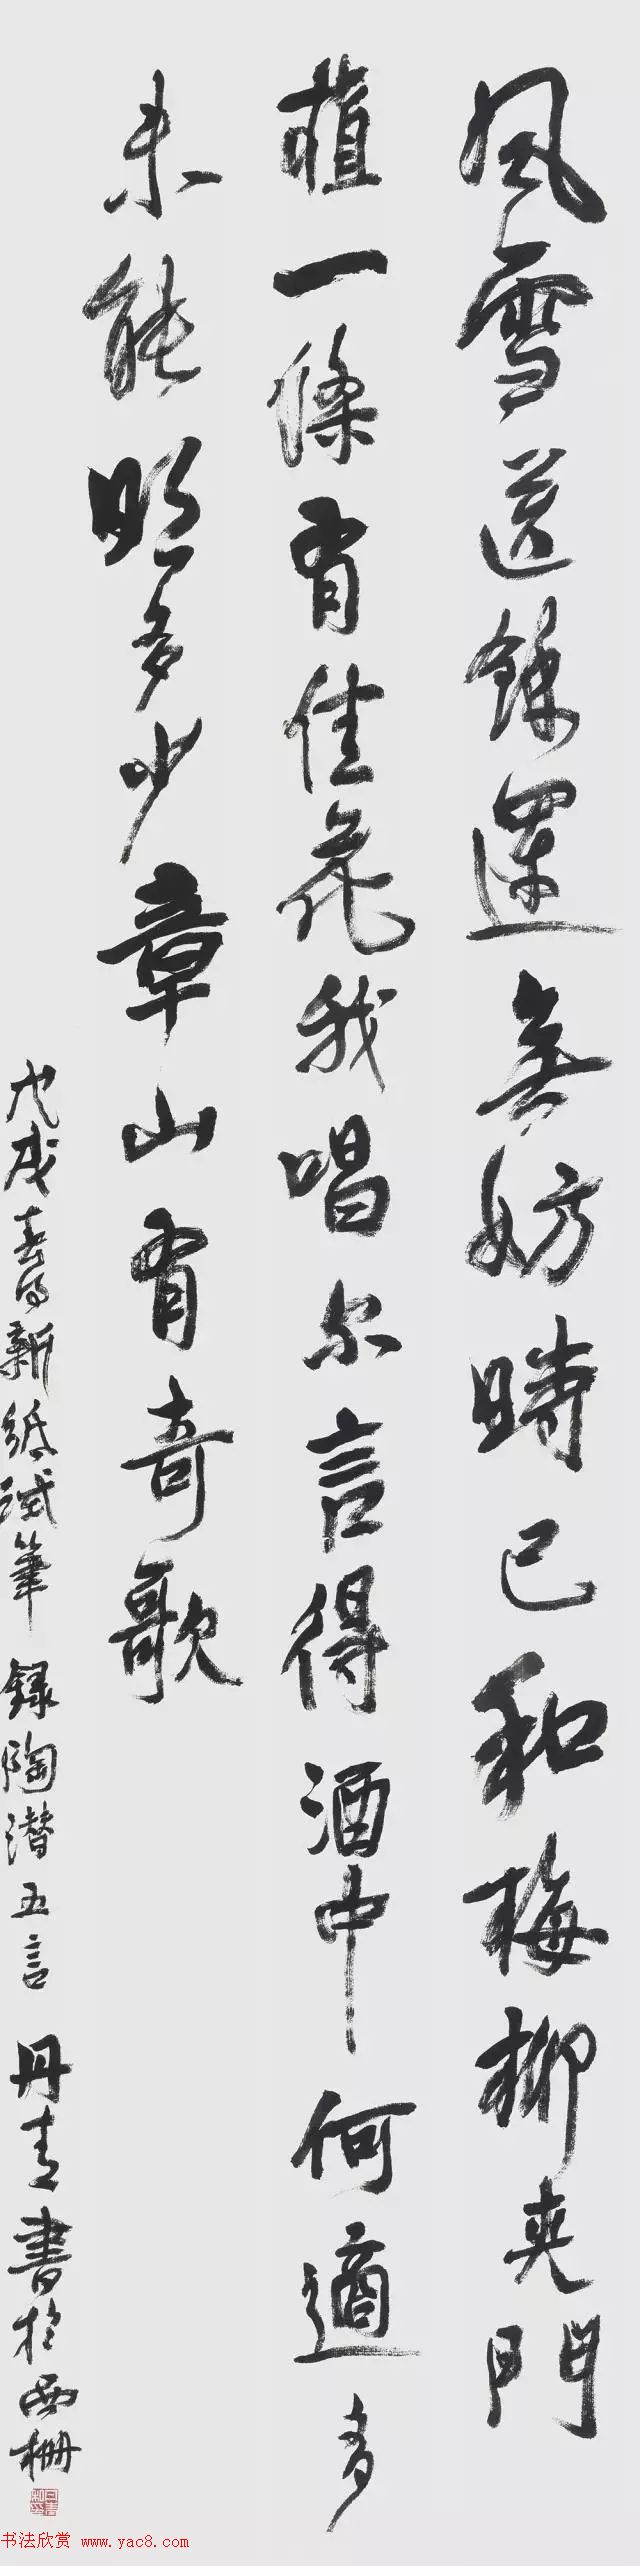 風雪送餘運無妨時已和梅柳夾門
植一條有佳花我唱尔言得酒中何適多
未能明多少章山有奇歌
戊戌春日新紙試筆錄陶潛五言丹青書於西柵
书法欣赏 www.yac8.com